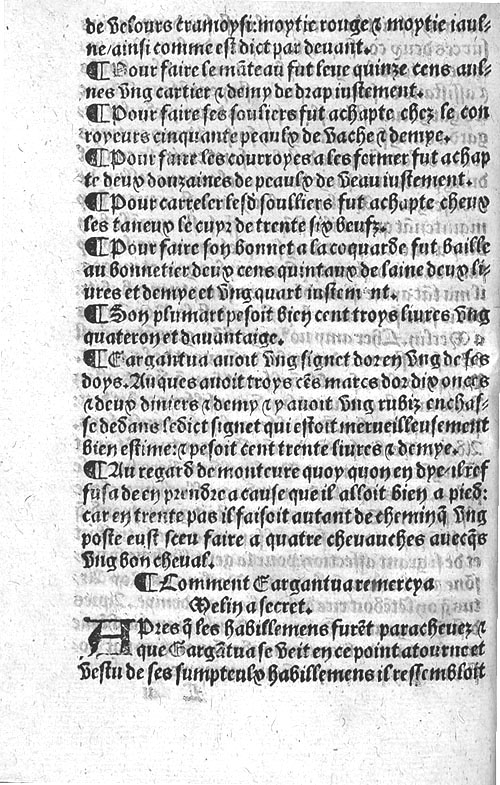 de velours cramoysi: moytie rouge ⁊ moytie iaul-
ne/ainsi comme est dict par deuant.
¶Pour faire le mãteau fut leue quinze cens aul-
nes vng cartier ⁊ demy de drap iustement.
¶Pour faire ses souliers fut achapte chez le con
royeurs cinquante peaulx de vache ⁊ demye.
¶Pour faire les courroyes a les fermer fut achap
te deux douzaines de peaulx de veau iustement.
¶Pour carreler lesd soulliers fut achapte cheux
les taneux le cuyr de trente six beufz.
¶Pour faire son bonnet a la coquarde fut baille
au bonnetier deux cens quintaux de laine deux li-
ures et demye et vng quart iustem nt.
¶Son plumart pesoit bien cent troys liures vng
quateron et dauantaige.
¶Gargantua auoit vng signet dor en vng de ses
doys. Auques auoit troys cẽs marcs dor dix onces
⁊ deux diniers ⁊ demy ⁊ y auoit vng rubiz enchas-
se dedans ledict signet qui estoit merueilleusement
bien estime: ⁊ pesoit cent trente liures ⁊ demye.
¶Au regard de monteure quoy quon en dye il ref
fusa de en prendre a cause que il alloit bien a pied:
car en trente pas il faisoit autant de chemin q̃ vng
poste eust sceu faire a quatre cheuauches auecq̃s
vng bon cheual.
¶Comment Gargantua remercya
Melin a secret.
APres q̃ les habillemens furẽt paracheuez ⁊
que Gargãtua se veit en ce point atourne et
vestu de ses sumpteulx habillemens il ressembloit